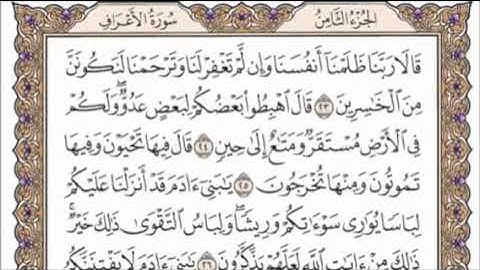 الجزء الثامن
سورة الأعراف
قَالَا رَبَّنَا ظَلَمْنَآ أَنفُسَنَا وَإِن لَّمْ تَغْفِرْ لَنَا وَتَرْحَمْنَا لَنَكُونَنَّ
مِنَ ٱلْخَٰسِرِينَ ٢٣ قَالَ ٱهْبِطُوا۟ بَعْضُكُمْ لِبَعْضٍ عَدُوٌّ ۖ وَلَكُمْ
فِى ٱلْأَرْضِ مُسْتَقَرٌّ وَمَتَٰعٌ إِلَىٰ حِينٍ ٢٤ قَالَ فِيهَا تَحْيَوْنَ وَفِيهَا
تَمُوتُونَ وَمِنْهَا تُخْرَجُونَ ٢٥ يَٰبَنِىٓ ءَادَمَ قَدْ أَنزَلْنَا عَلَيْكُمْ
لِبَاسًا يُوَٰرِى سَوْءَٰتِكُمْ وَرِيشًا ۖ وَلِبَاسُ ٱلتَّقْوَىٰ ذَٰلِكَ خَيْرٌ ۚ
ذَٰلِكَ مِنْ ءَايَٰتِ ٱللَّهِ لَعَلَّهُمْ يَذَّكَّرُونَ ٢٦ يَٰبَنِىٓ ءَادَمَ لَا يَفْتِنَنَّكُمُ